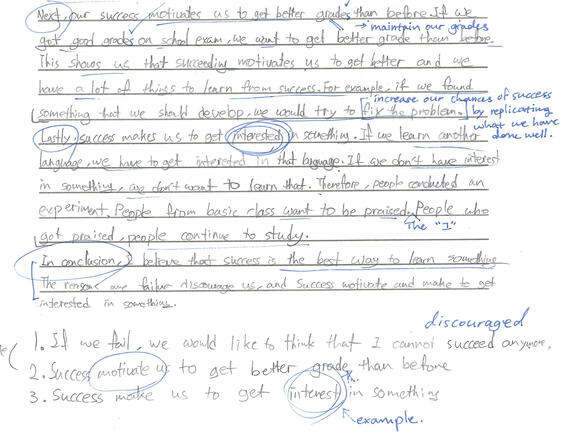 Next, our success motivates us to get better grades than before. If we
→ maintain our grades
got good grades on school exam, we want to get better grade than before.
This shows us that succeeding motivates us to get better and we
have a lot of things to learn from success. For example, if we found
something that we should develop, we would try to fix the problem.
increase our chances of success
by replicating
what we have
done well.
Lastly, success makes us to get interested in something. If we learn another
language, we have to get interested in that language. If we don't have interest
in something, we don't want to learn that. Therefore, people conducted an
experiment. People from basic class want to be praised. People who
The "I"
got praised, people continue to study.
In conclusion, I believe that success is the best way to learn something
The reasons are failure discourage us, and success motivate and make to get
interested in something.
discouraged
1. If we fail, we would like to think that I cannot succeed anymore.
2. Success motivate us to get better grade than before
3. Success make us to get interest in something
example.